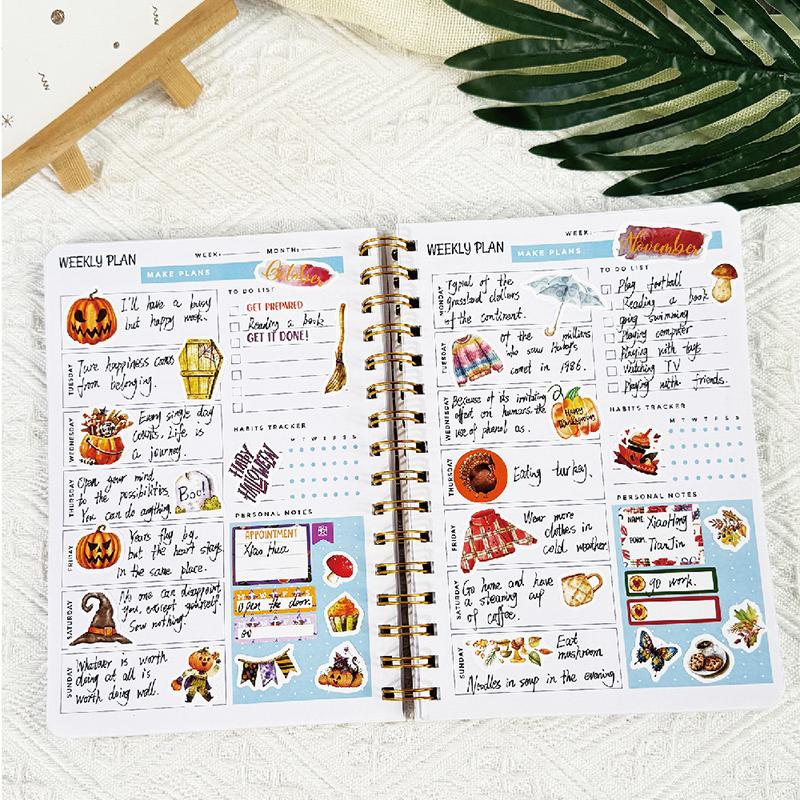 WEEKLY PLAN
WEEK:
MONTH:
MAKE PLANS
October
I'll have a busy
but happy week.
TUESDAY
Ture happiness comes
from belonging.
WEDNESDAY
Every single day
counts. Life is
a journey.
THURSDAY
Open your mind
to the possibilities.
You can do anything.
Boo!
FRIDAY
Years flay by,
but the heart stays
in the same place.
SATURDAY
No one can disappoint
you, except yourself.
Sow nothing.
SUNDAY
Whatever is worth
doing at all is
worth doing well.
TO DO LIST
GET PREPARED
Reading a book
GET IT DONE!
HABITS TRACKER
M T W T F S S
HAPPY
HALLOWEEN
PERSONAL NOTES
APPOINTMENT
Xiao Hua
open the door.
go
WEEKLY PLAN
WEEK:
MAKE PLANS
November
MONDAY
Typical of the
grassland dollars
of the continent.
TUESDAY
of the millions
who saw Haley's
comet in 1986.
WEDNESDAY
Because of its irritating
effect on humans, the
use of phenol as.
Happy
Thanksgiving
THURSDAY
Eating turkey.
FRIDAY
Wear more
clothes in
cold weather.
SATURDAY
Go home and have
a steaming cup
of coffee.
SUNDAY
Eat
mushroom
Noodles in soup in the evening.
TO DO LIST
Play football
Reading a book
going swimming
Playing computer
Playing with toys
Watching TV
Playing with friends.
HABITS TRACKER
M T W T F S S
PERSONAL NOTES
NAME XiaoHong
TianJin
go work.